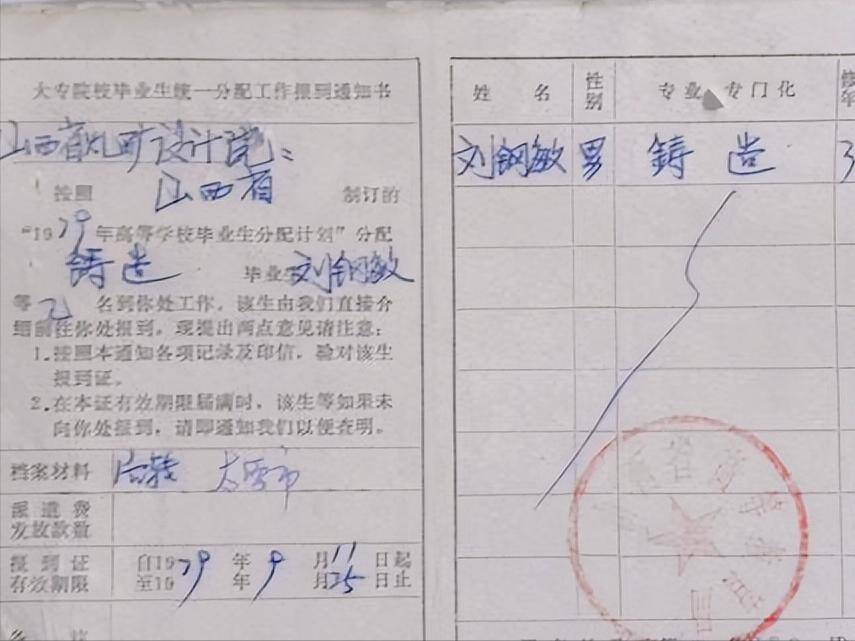 大专院校毕业生统一分配工作报到通知书
山西省 矿设计院:
按照 山西省 制订的
“1979年高等学校毕业生分配计划”分配
铸造 毕业生刘钢敏
等 名到你处工作。该生由我们直接介
绍前往你处报到，现提出两点意见请注意：
1.按照本通知各项记录及印信，验对该生
报到证。
2.在本证有效期限届满时，该生等如果未
向你处报到，请即通知我们以便查明。
档案材料 后转 太原市
派遣费
发放款数
报到证 自1979年9月11日起
有效期限 至1979年9月25日止
姓名 性别 专业 专门化 修 年
刘钢敏 男 铸造 3
省 高 等